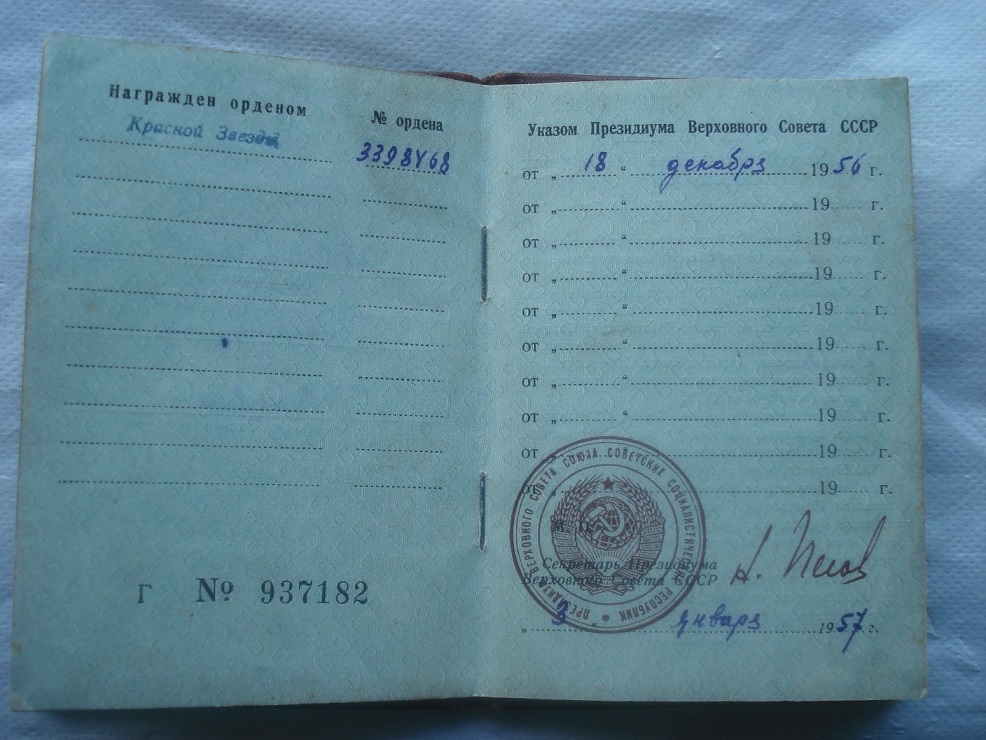 Награжден орденом
№ ордена
Красной Звезды
3398468
Г № 937182
Указом Президиума Верховного Совета СССР
от „ 18 “ декабря 1956 г.
от „ “ 19 г.
от „ “ 19 г.
от „ “ 19 г.
от „ “ 19 г.
от „ “ 19 г.
от „ “ 19 г.
от „ “ 19 г.
от „ 19 г.
от „ 19 г.
ПРЕЗИДИУМ ВЕРХОВНОГО СОВЕТА СОЮЗА СОВЕТСКИХ СОЦИАЛИСТИЧЕСКИХ РЕСПУБЛИК
Секретарь Президиума
Верховного Совета СССР
„ 3 “ января 1957 г.